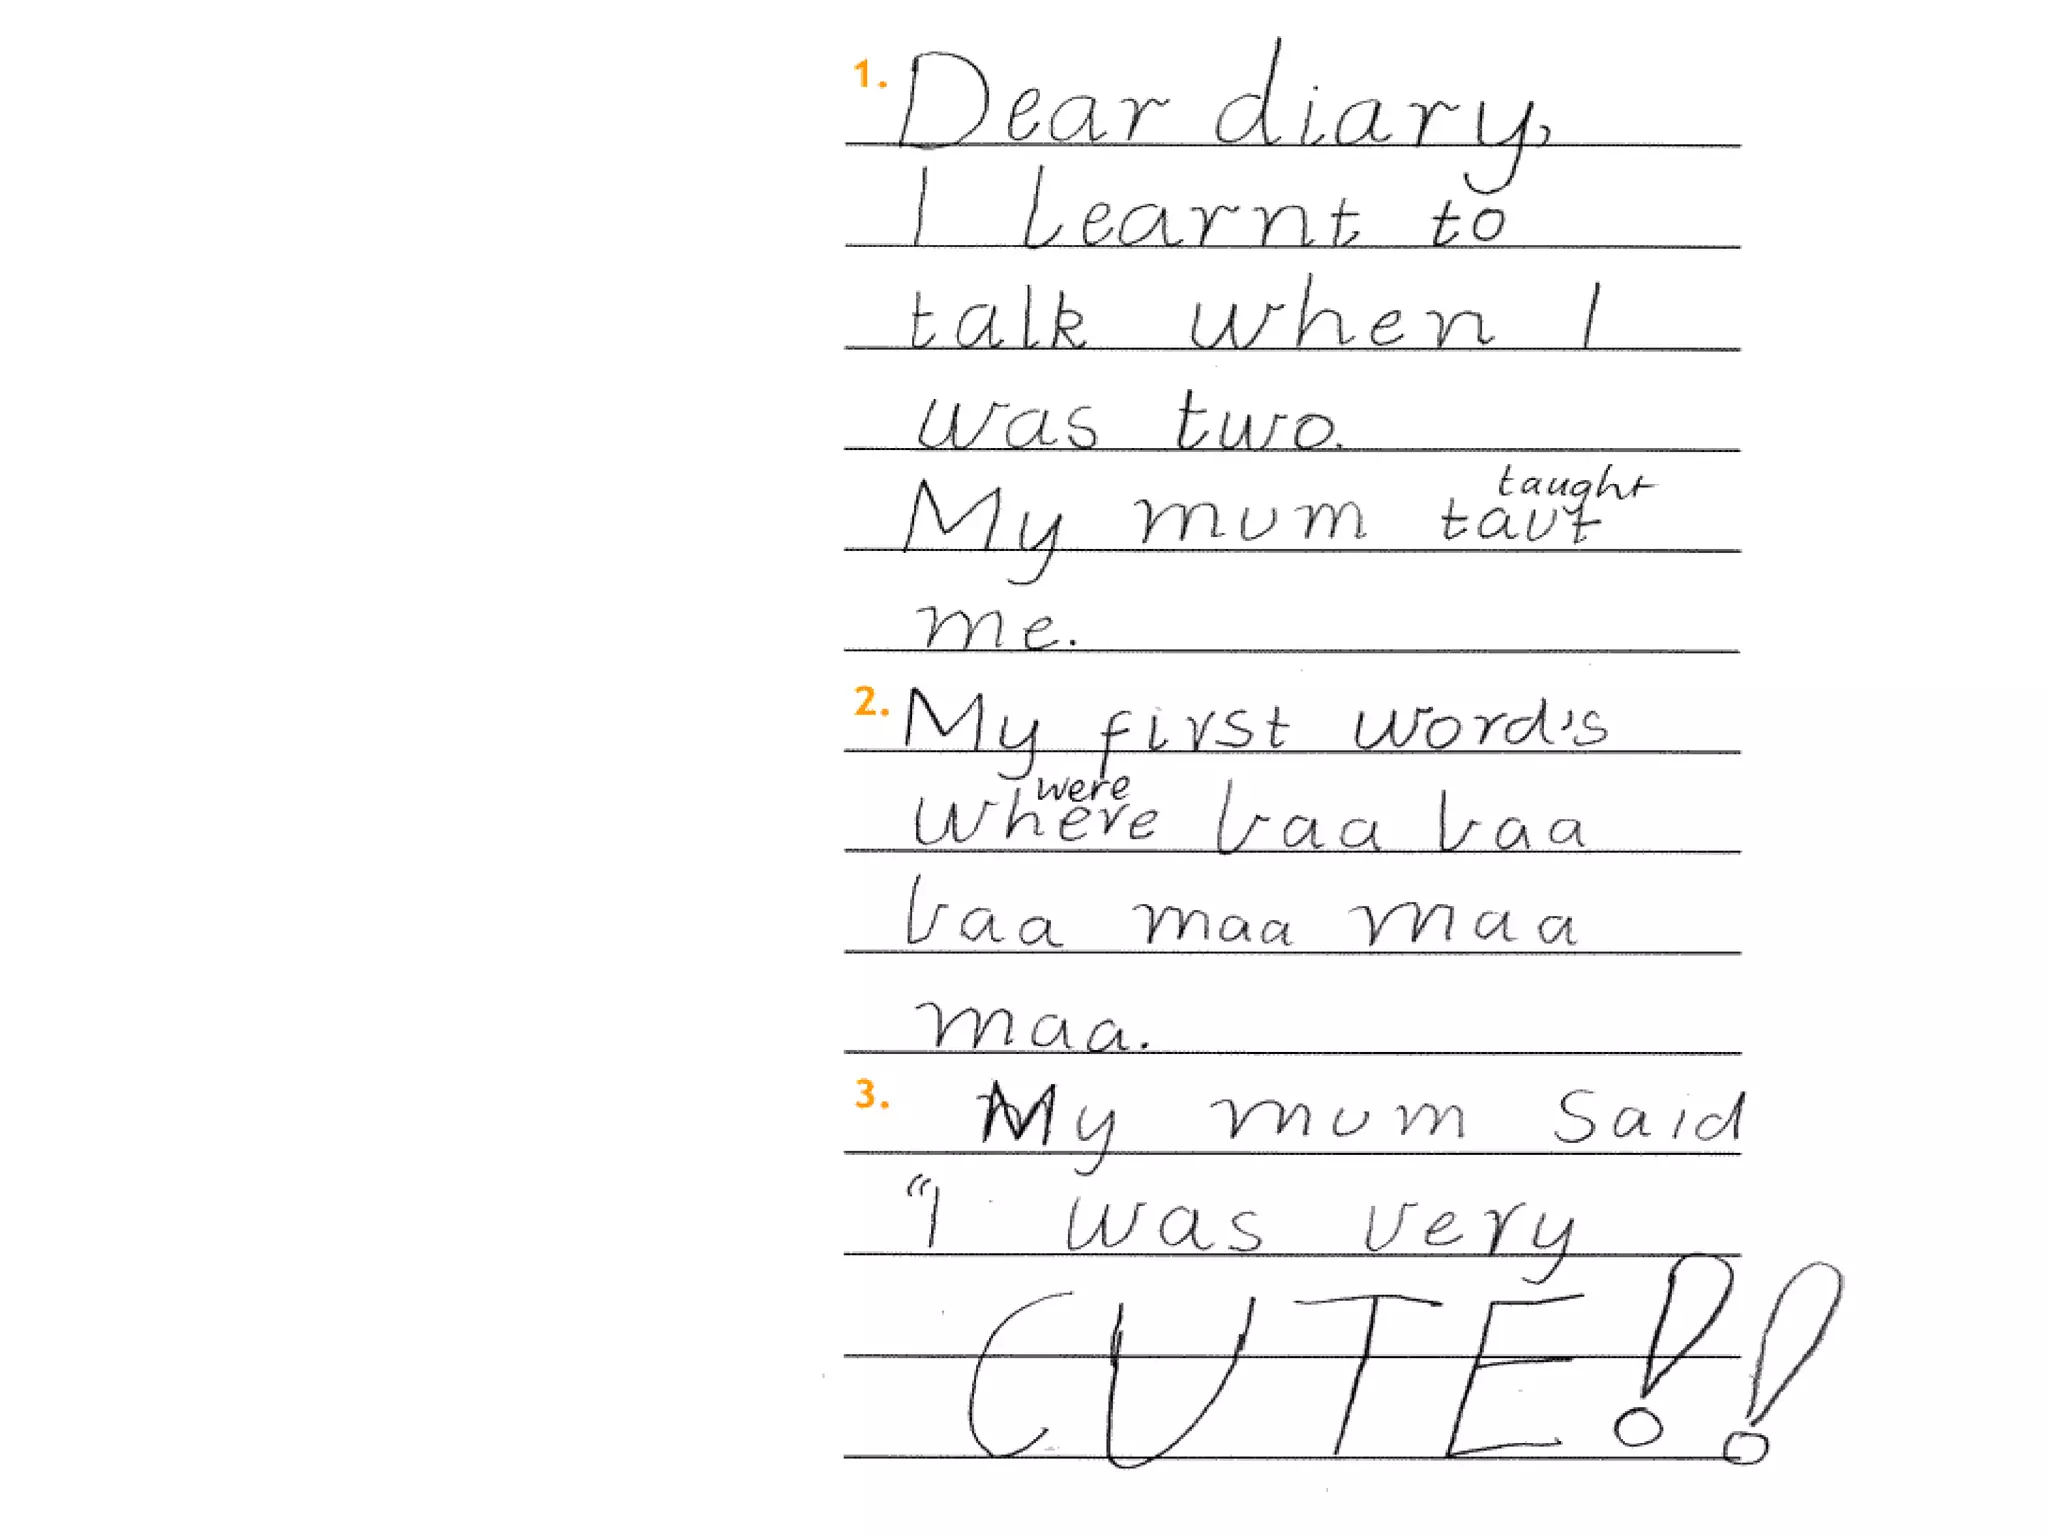 1. Dear diary,
I learnt to
talk when I
was two.
taught
My mum taut
me.
2. My first word's
were
where baa baa
baa maa maa
maa.
3. My mum said
“I was very
CUTE!!